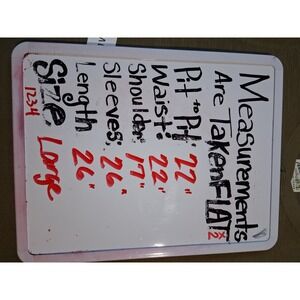 Measurements
Are Taken FLAT x2
Pit to Pit: 22"
Waist: 22"
Shoulder: 17"
Sleeves: 26"
Length 26"
Size: Large
1234